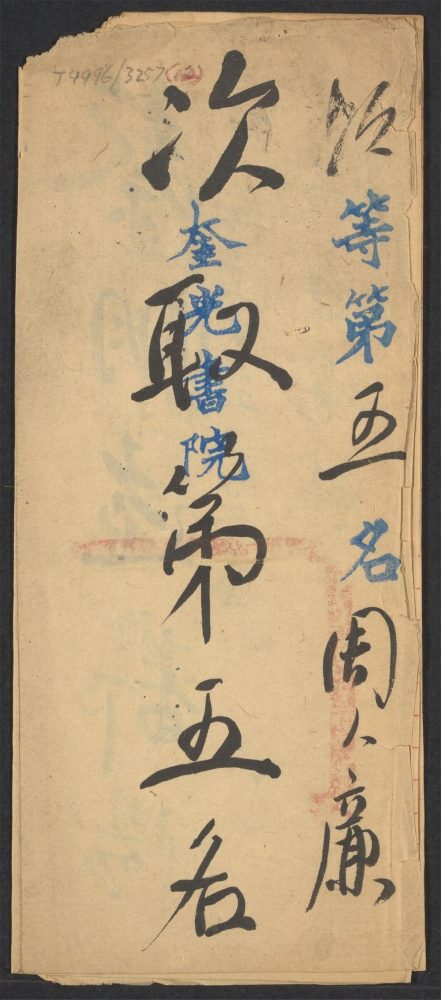 T4996/3257(12)
次等第五名周人廉
奎光書院
次取第五名